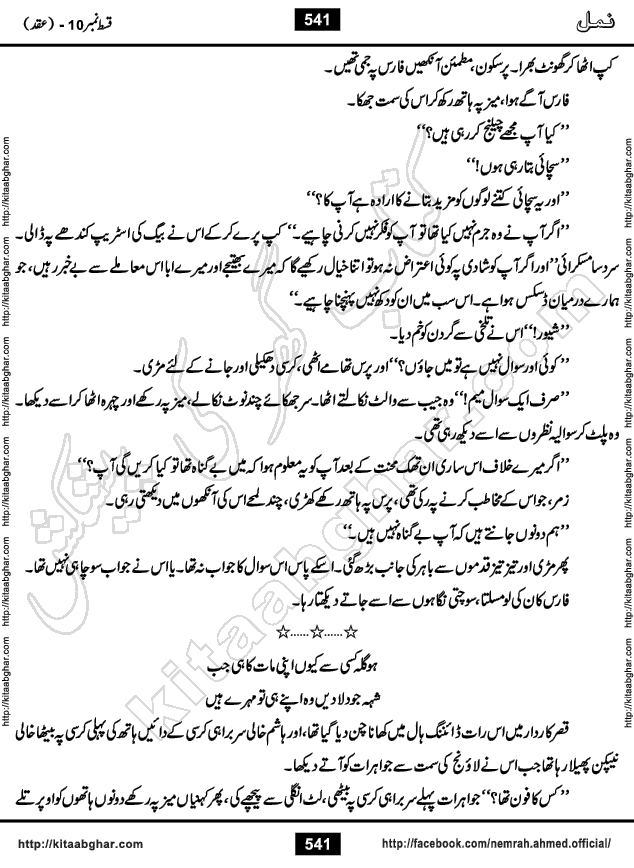 نمل
541
قسط نمبر 10 - (عقد)
کپ اٹھا کر گھونٹ بھرا۔ پرسکون، مطمئن آنکھیں فارس پہ جمی تھیں۔
فارس آگے ہوا، میز پہ ہاتھ رکھ کر اس کی سمت جھکا۔
’’کیا آپ مجھے چیلنج کر رہی ہیں؟‘‘
’’سچائی بتا رہی ہوں!‘‘
’’اور یہ سچائی کتنے لوگوں کو مزید بتانے کا ارادہ ہے آپ کا؟‘‘
’’اگر آپ نے وہ جرم نہیں کیا تھا تو آپ کو فکر نہیں کرنی چاہیے۔‘‘ کپ پرے کر کے اس نے بیگ کی اسٹریپ کندھے پہ ڈالی۔
سرد سا مسکرائی ’’اور اگر آپ کو شادی پہ کوئی اعتراض نہ ہو تو اتنا خیال رکھیے گا کہ میرے بھتیجے اور میرے ابا اس معاملے سے بے خبر رہیں، جو
ہمارے درمیان ڈسکس ہوا ہے۔ اس سب میں ان کو دکھ نہیں پہنچنا چاہیے۔‘‘
’’شیور!‘‘ اس نے تلخی سے گردن کو خم دیا۔
’’کوئی اور سوال نہیں ہے تو میں جاؤں؟‘‘ اور پرس تھامے اٹھی، کرسی دھکیلی اور جانے کے لئے مڑی۔
’’صرف ایک سوال میم!‘‘ وہ جیب سے والٹ نکالتے اٹھا۔ سر جھکائے چند نوٹ نکالے، میز پہ رکھے اور چہرہ اٹھا کر اسے دیکھا۔
وہ پلٹ کر سوالیہ نظروں سے اسے دیکھ رہی تھی۔
’’اگر میرے خلاف اس ساری ان تھک محنت کے بعد آپ کو یہ معلوم ہوا کہ میں بے گناہ تھا تو کیا کریں گی آپ؟‘‘
زمر، جو اس کے مخاطب کرنے پہ رکی تھی، پرس پہ ہاتھ رکھے کھڑی، چند لمحے اس کی آنکھوں میں دیکھتی رہی۔
’’ہم دونوں جانتے ہیں کہ آپ بے گناہ نہیں ہیں۔‘‘
پھر مڑی اور تیز تیز قدموں سے باہر کی جانب بڑھ گئی۔ اسکے پاس اس سوال کا جواب نہ تھا۔ یا اس نے جواب سوچا ہی نہیں تھا۔
فارس کان کی لو مسلتا، سوچتی نگاہوں سے اسے جاتے دیکھتا رہا۔
☆......☆......☆
ہو گلہ کسی سے کیوں اپنی مات کا ہی جب
شہہ جو دلا دیں وہ اپنے ہی تو مہرے ہیں
قصر کاردار میں اس رات ڈائننگ ہال میں کھانا چن دیا گیا تھا، اور ہاشم خالی سربراہی کرسی کے دائیں ہاتھ کی پہلی کرسی پہ بیٹھا خالی
نیپکن پھیلا رہا تھا جب اس نے لاؤنج کی سمت سے جواہرات کو آتے دیکھا۔
’’کس کا فون تھا؟‘‘ جواہرات پہلے سربراہی کرسی پہ بیٹھی، لٹ انگلی سے پیچھے کی، پھر کہنیاں میز پہ رکھے دونوں ہاتھوں کو اوپر تلے
http://kitaabghar.com
541
http://facebook.com/nemrah.ahmed.official/
http://kitaabghar.com http://kitaabghar.com http://kitaabghar.com http://kitaabghar.com http://kitaabghar.com http://kitaabghar.com
http://kitaabghar.com http://kitaabghar.com http://kitaabghar.com http://kitaabghar.com http://kitaabghar.com http://kitaabghar.com
کتاب گھر کی پیشکش
kitaabghar.com